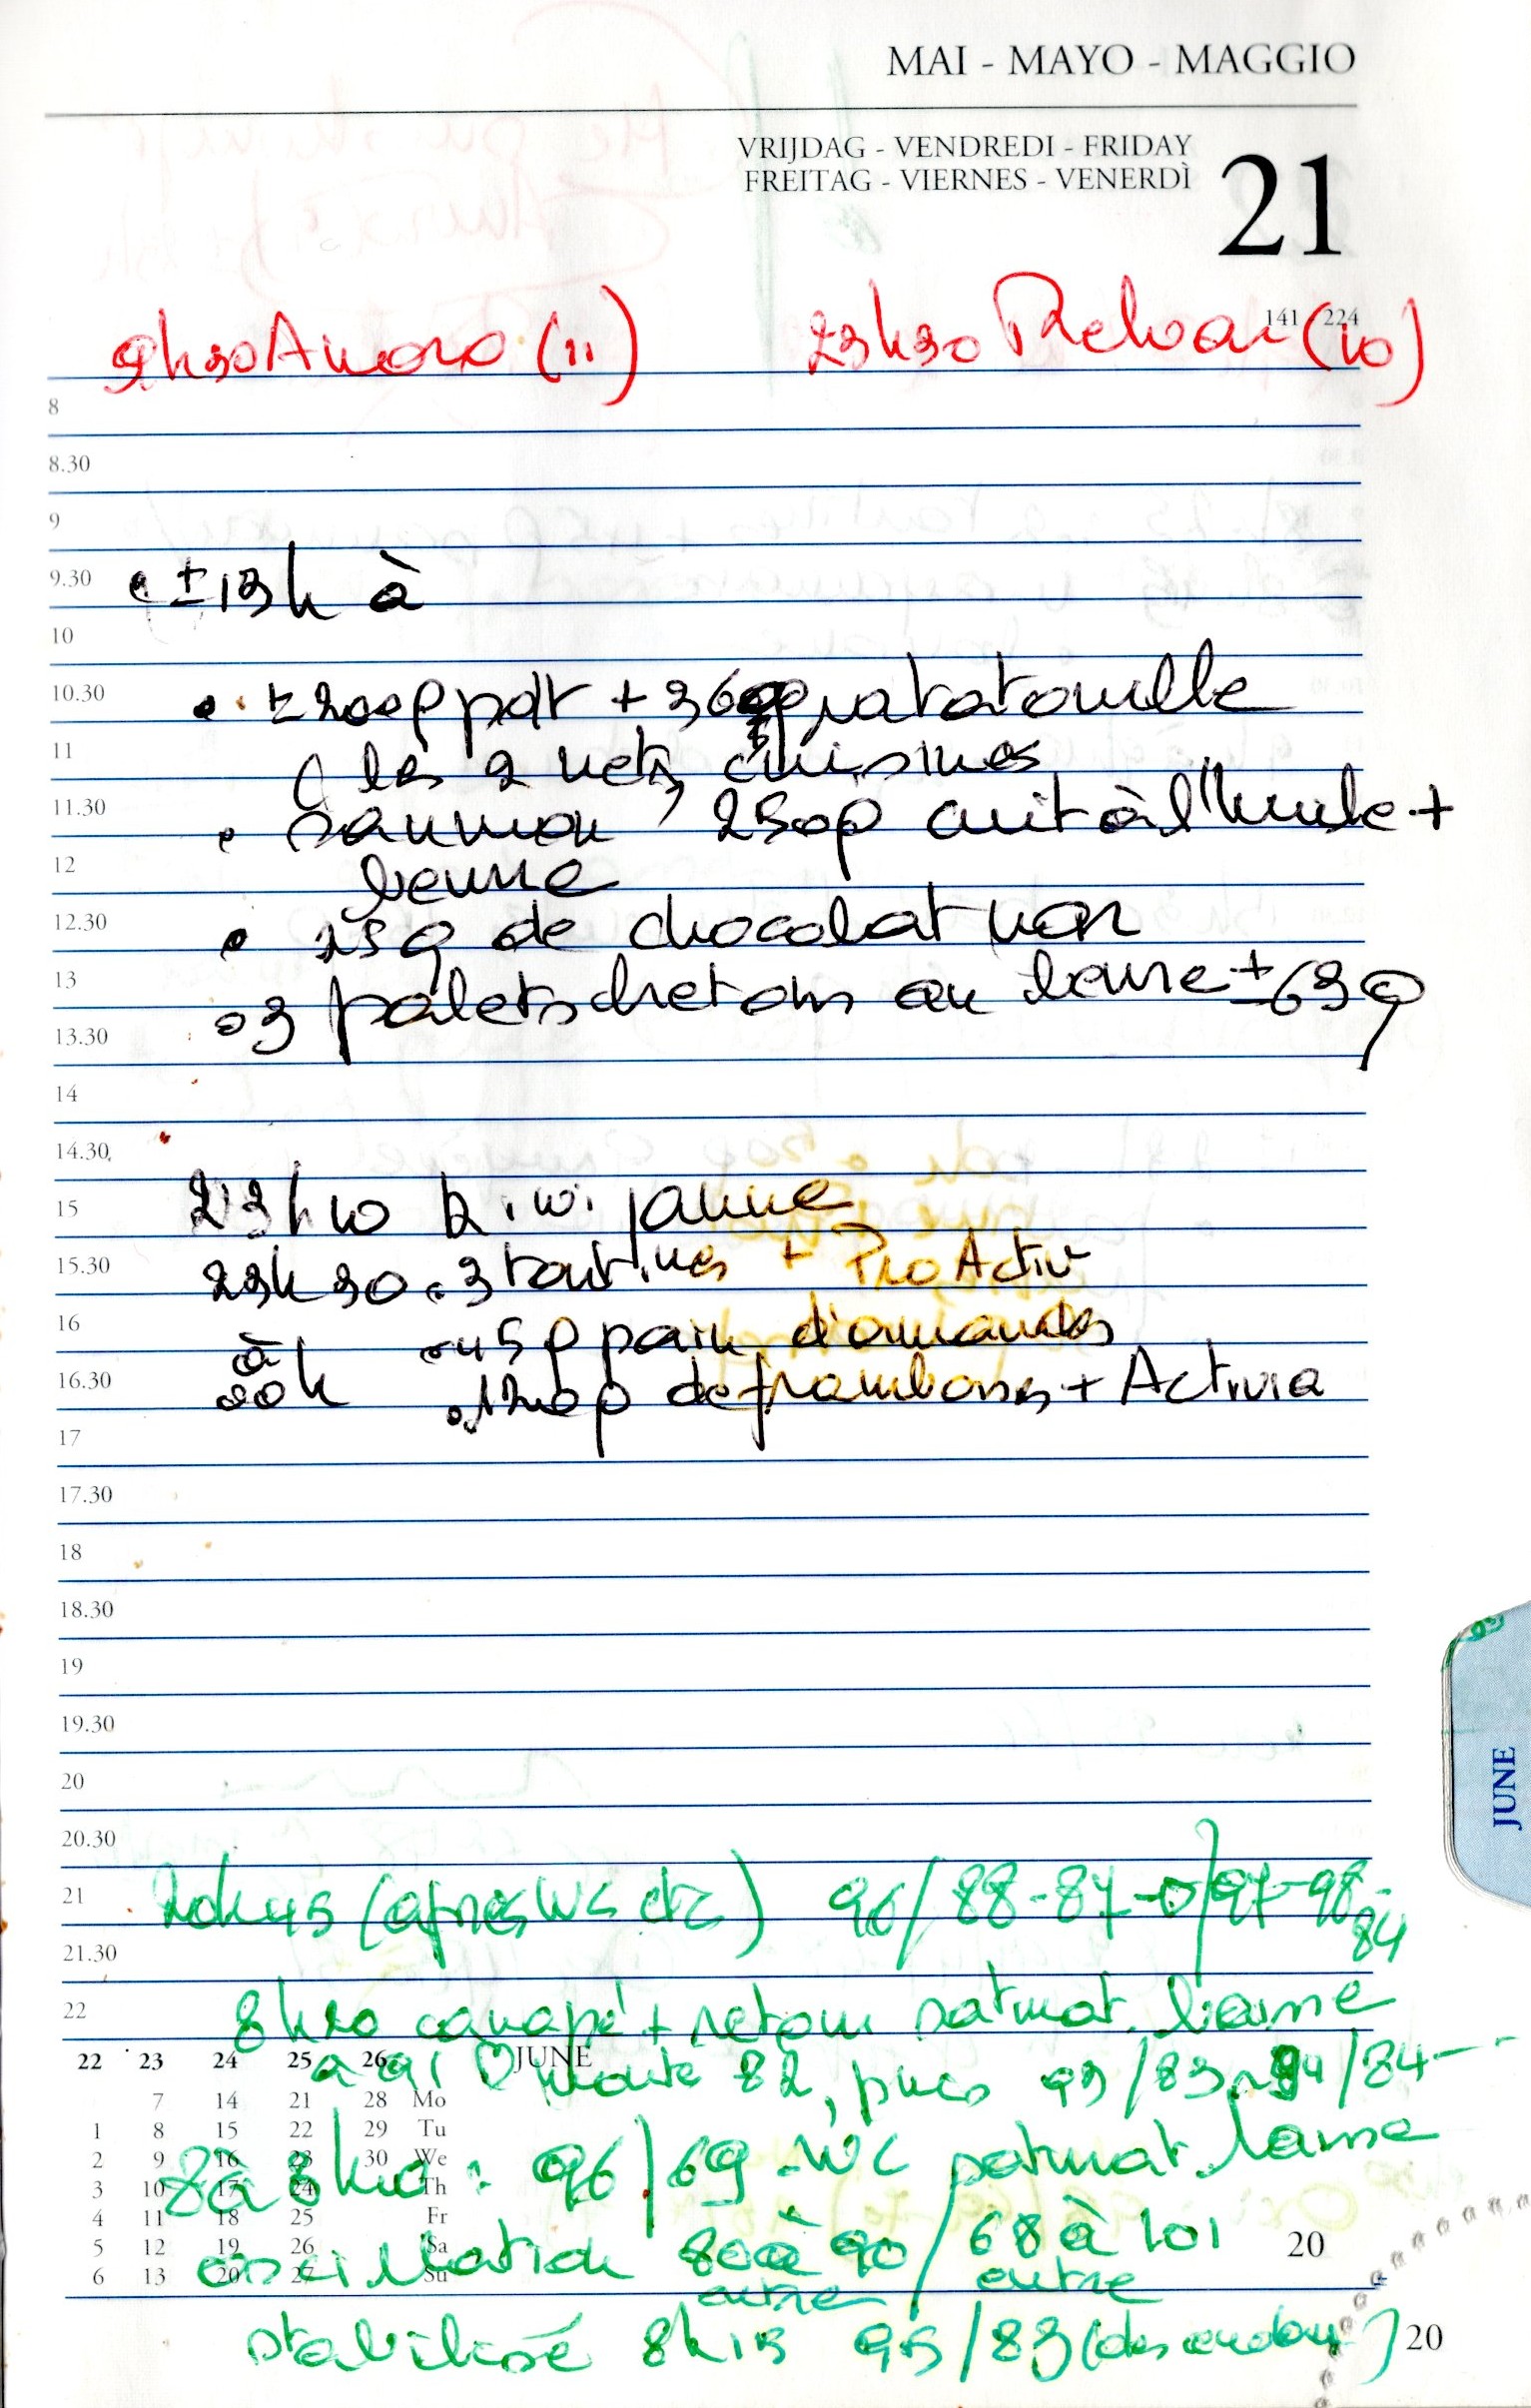 MAI - MAYO - MAGGIO
VRIJDAG - VENDREDI - FRIDAY
FREITAG - VIERNES - VENERDÌ
21
141 224
9h30 (11) 23h30 (10)
8
8.30
9
9.30 ± 13h à
10
10.30 ± 200g pdt + 360g ratatouille
11 les 2 cuisines
11.30 • saumon 250g cuit à l'huile +
12 beurre
12.30 • 25g de chocolat noir
13 3 palets bretons au beurre ± 63g
13.30
14
14.30
15 23h10 kiwi jaune
15.30 23h30 • 3 tartines + ProActiv
16 45g pain d'amandes
16.30 à h • 120g de framboises + Activia
17
17.30
18
18.30
19
19.30
20
20.30
21 (après WC etc) 96/88-87 97-98-
84
21.30
22 8h20 canapé + retour
22 23 24 25 26 JUNE
à 91 monte 82, puis 93/83 84/84--
7 14 21 28 Mo
1 8 15 22 29 Tu
2 9 16 23 30 We
3 10 17 24 Th
4 11 18 25 Fr
5 12 19 26 Sa
6 13 20 27 Su
96/69 - WC
oscillation 80 à 90 / 68 à 101
entre entre
stabilisé 8h15 95/83
20
20
JUNE